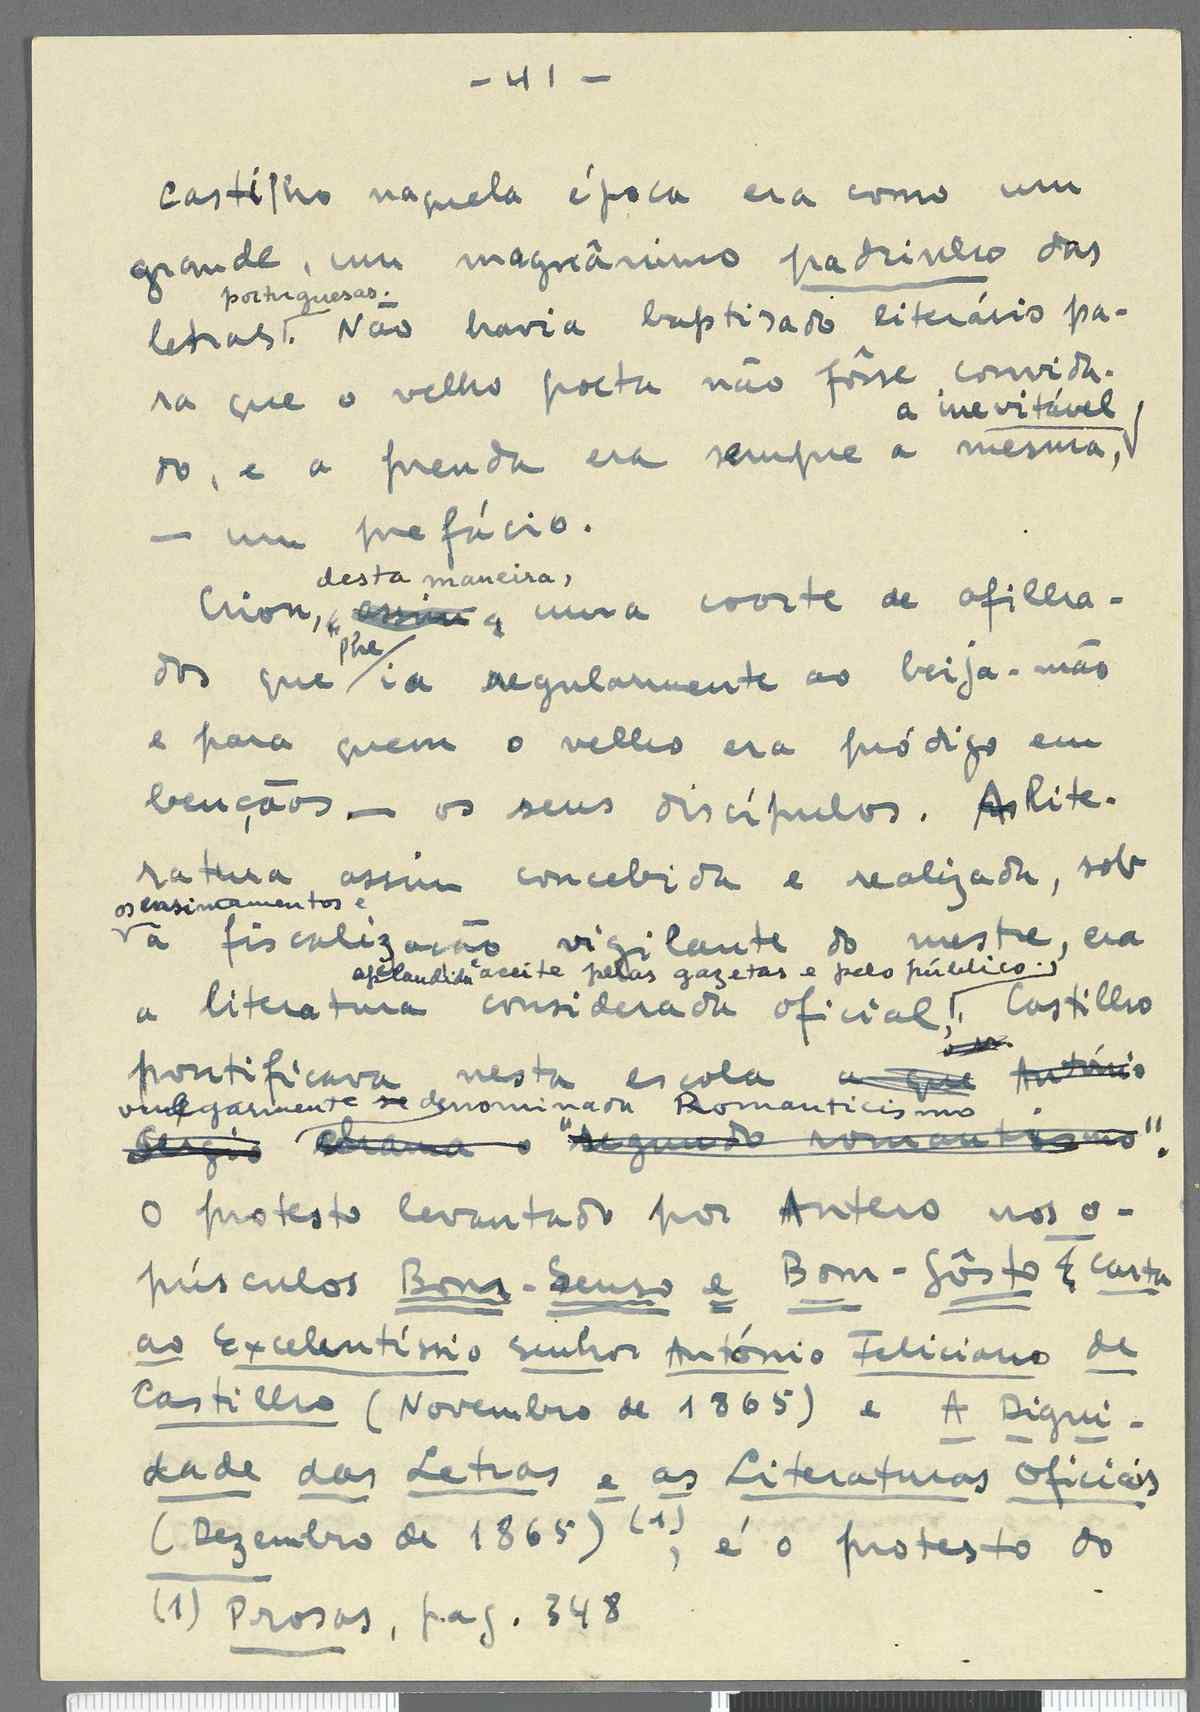 - 41 -
Castilho naquela época era como um
grande, um magnânimo padrinho das
portuguesas.
letras. Não havia baptisado literário pa-
ra que o velho poeta não fôsse convida-
a inevitável
do, e a prenda era sempre a mesma,
— um prefácio.
desta maneira,
Criou, assim uma coorte de afilha-
lhe
dos que ia regularmente ao beija-mão
e para quem o velho era pródigo em
bençãos — os seus discípulos. A lite-
ratura assim concebida e realizada, sob
os ensinamentos e
a fiscalização vigilante do mestre, era
aplaudida e aceite pelas gazetas e pelo público.
a literatura considerada oficial, Castilho
pontificava nesta escola a que António
vulgarmente denominada Romanticismo.
Sergio chama o "segundo romantismo".
O protesto levantado por Antero nos o-
púsculos Bom-Senso e Bom-Gôsto, carta
ao Excelentíssio Senhor António Feliciano de
Castilho (Novembro de 1865) e A Digni-
dade das Letras e as Literaturas Oficiais
(Dezembro de 1865) (1), é o protesto do
(1) Prosas, pag. 348